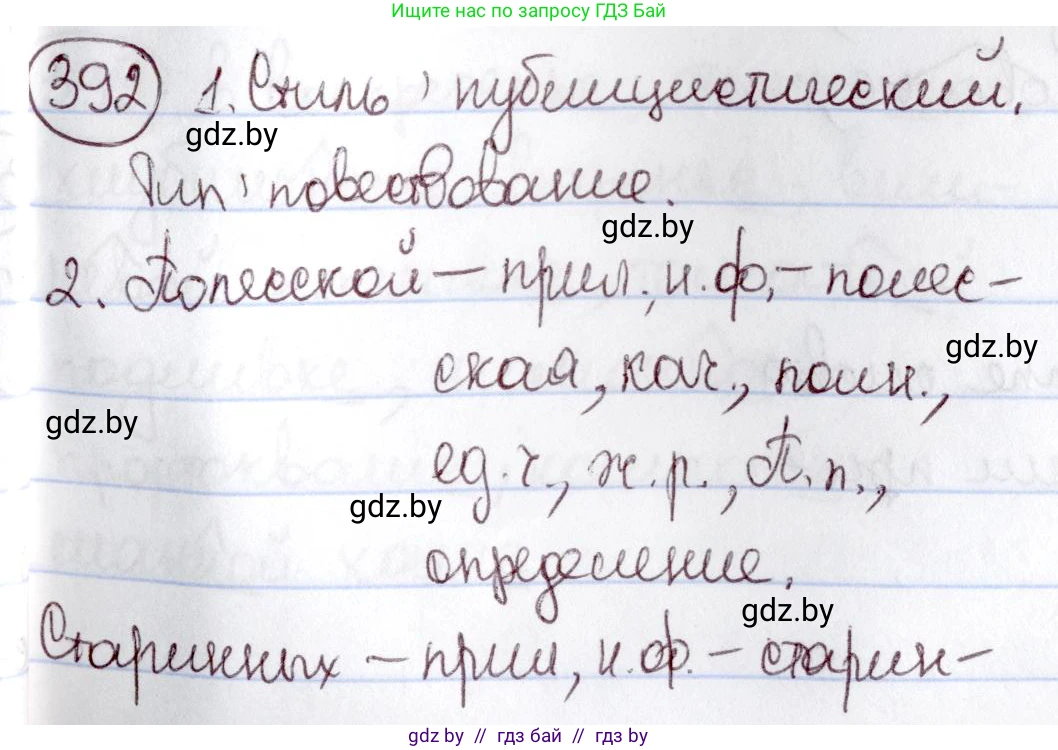 Ищите нас по запросу ГДЗ Бай
392 1. Стиль, публицистический.
gdz.by
Тип, повествование.
gdz.by
2. Полесской – прил., н.ф. – полес-
gdz.by
ская, кач., полн.,
gdz.by
ед.ч., ж.р., П.п.,
gdz.by
определение.
gdz.by
Старинных – прил., н.ф. – старин-
gdz.by // гдз бай // gdz by